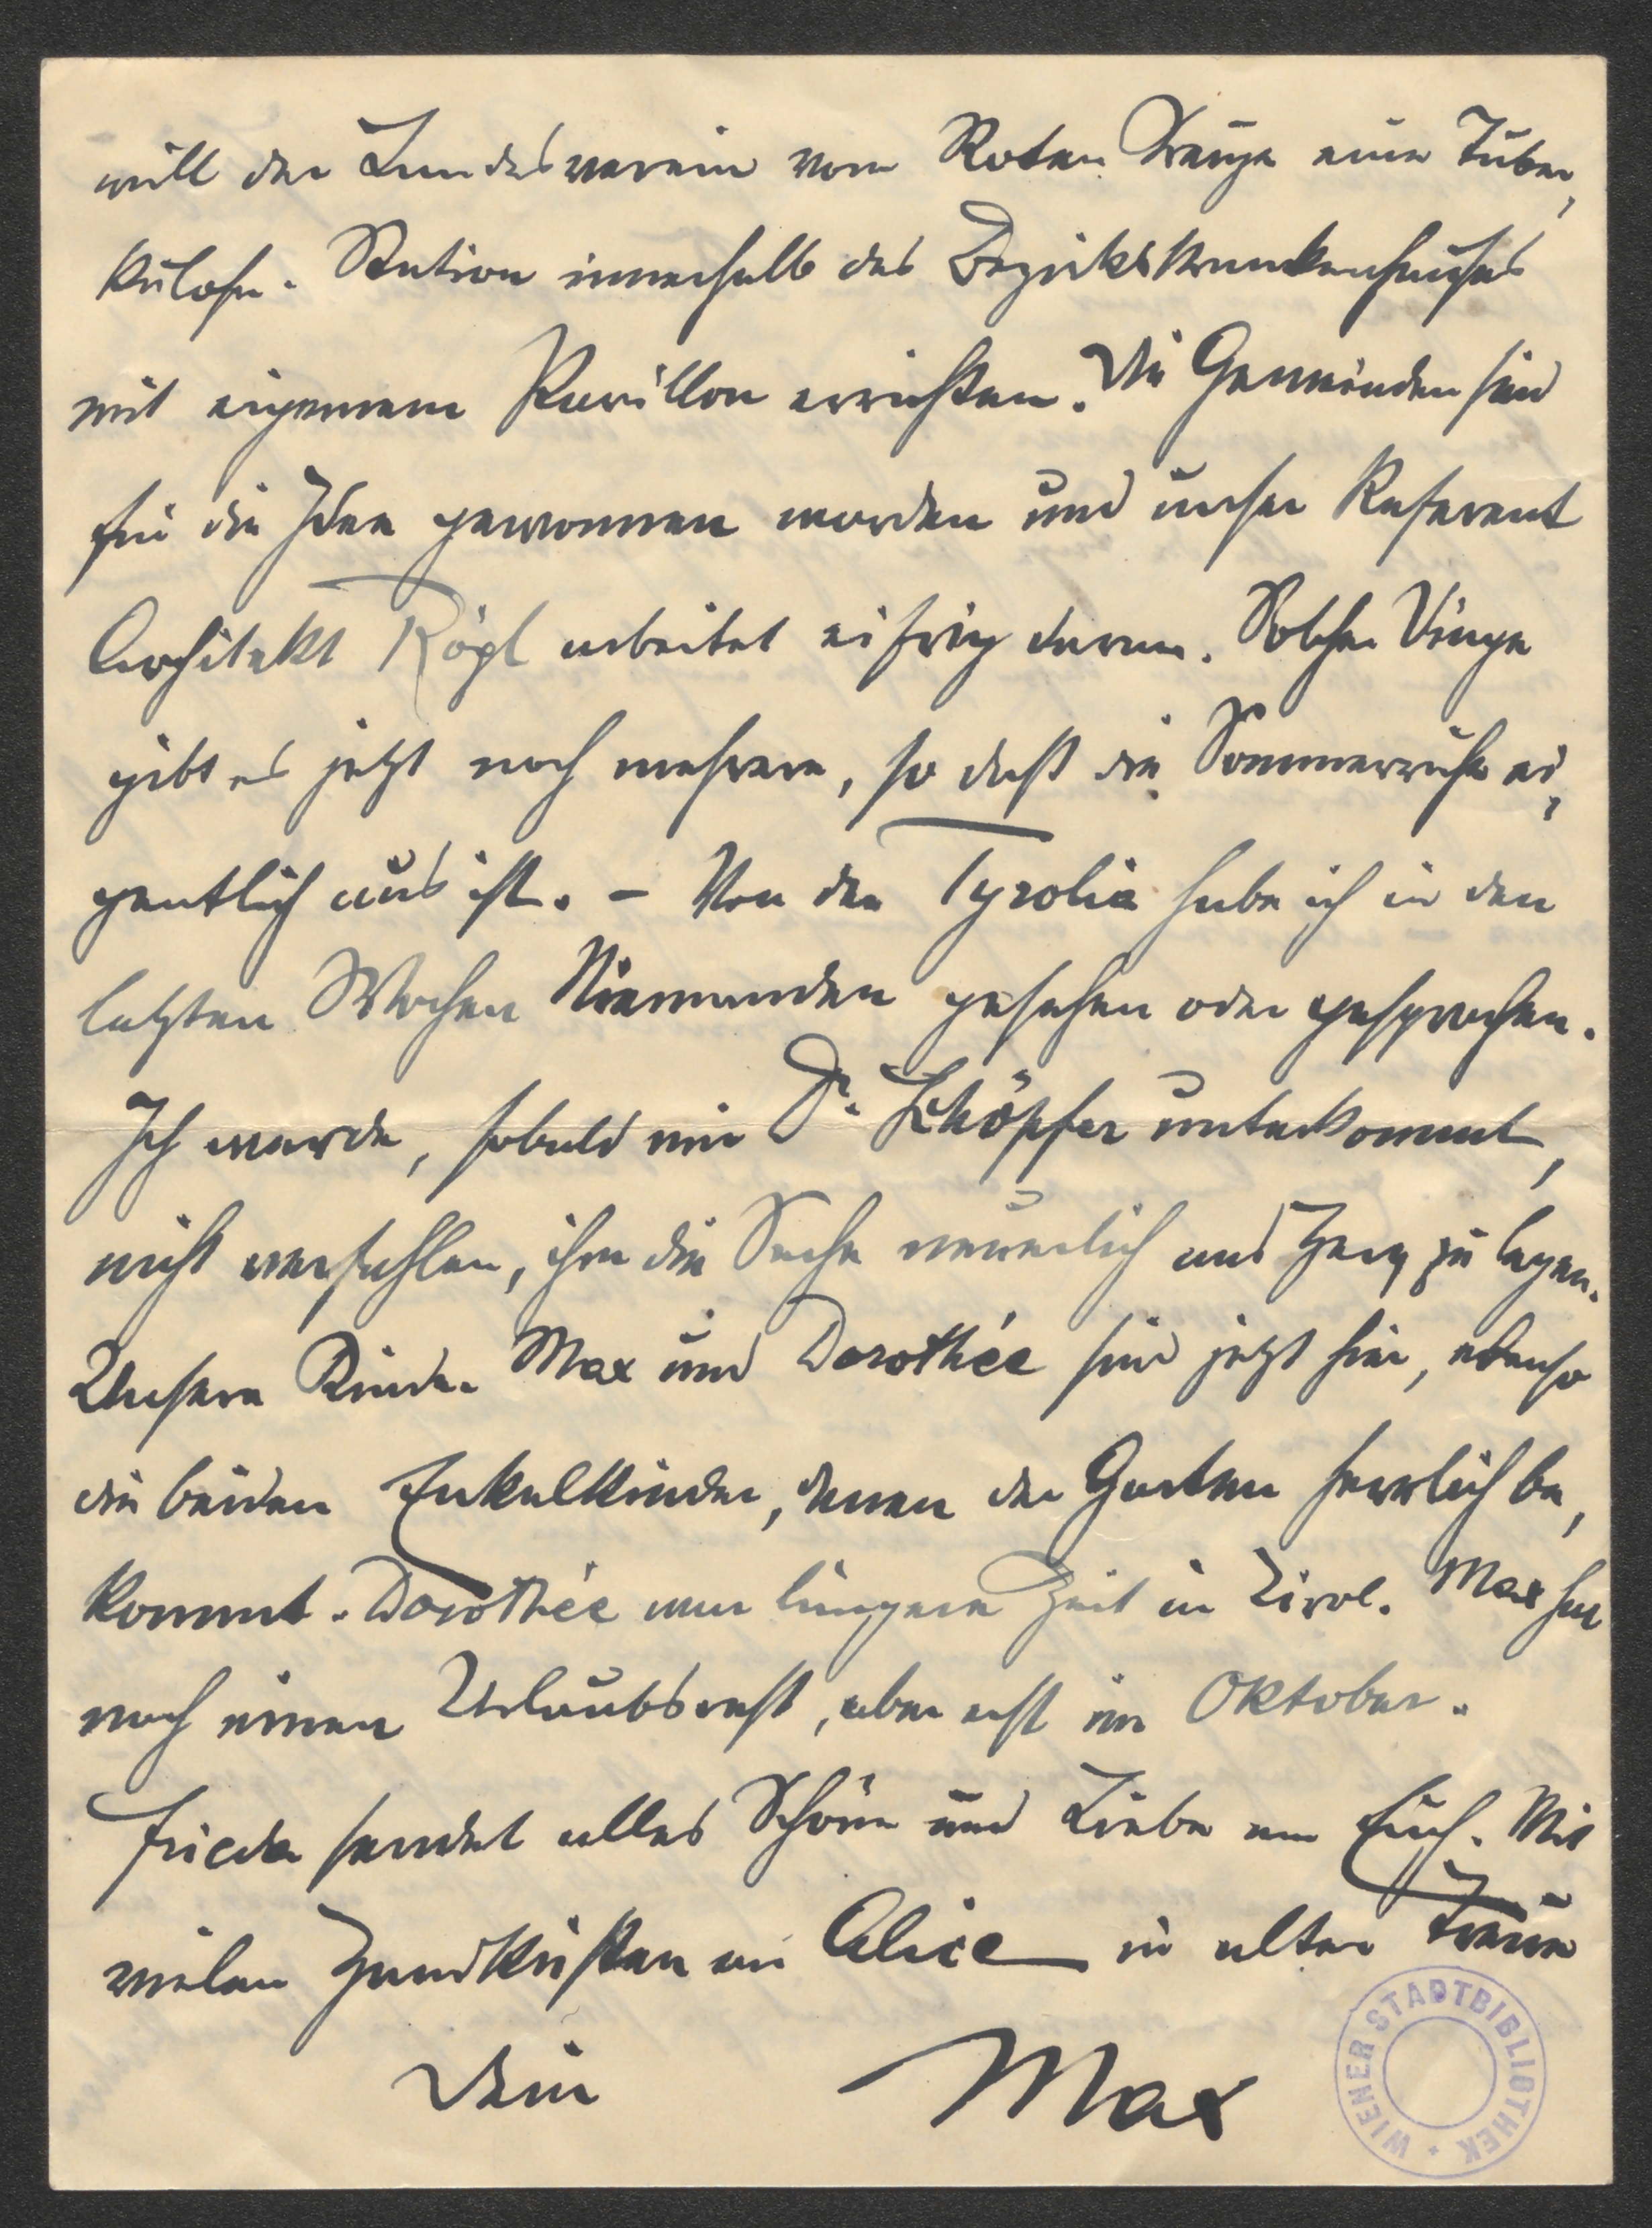 will der Landesverein vom Roten Kreuze eine Tuber,
kulose-Station innerhalb des Bezirkskrankenhauses
mit eigenem Pavillon errichten. Die Gemeinden sind
für die Idee gewonnen worden und unser Referent
Architekt Kögl arbeitet eifrig daran. Solcher Dinge
gibt es jetzt noch mehrere, so daß die Sommerruhe ei,
gentlich aus ist. – Von der Tyrolia habe ich in den
letzten Wochen Niemanden gesehen oder gesprochen.
Ich werde, sobald mir Dr. Schöpfer unterkommt,
nicht verfehlen, ihm die Sache neuerlich ans Herz zu legen.
Unsere Kinder Max und Dorothée sind jetzt hier, ebenso
die beiden Enkelkinder, denen der Garten herrlich be,
kommt. Dorothée war längere Zeit in Tirol. Max hat
noch einen Urlaubsrest, aber erst im Oktober.
Frieda sendet alles Schöne und Liebe an Euch. Mit
vielen Handküssen an Alice in alter Treue
Dein Max
WIENER STADTBIBLIOTHEK